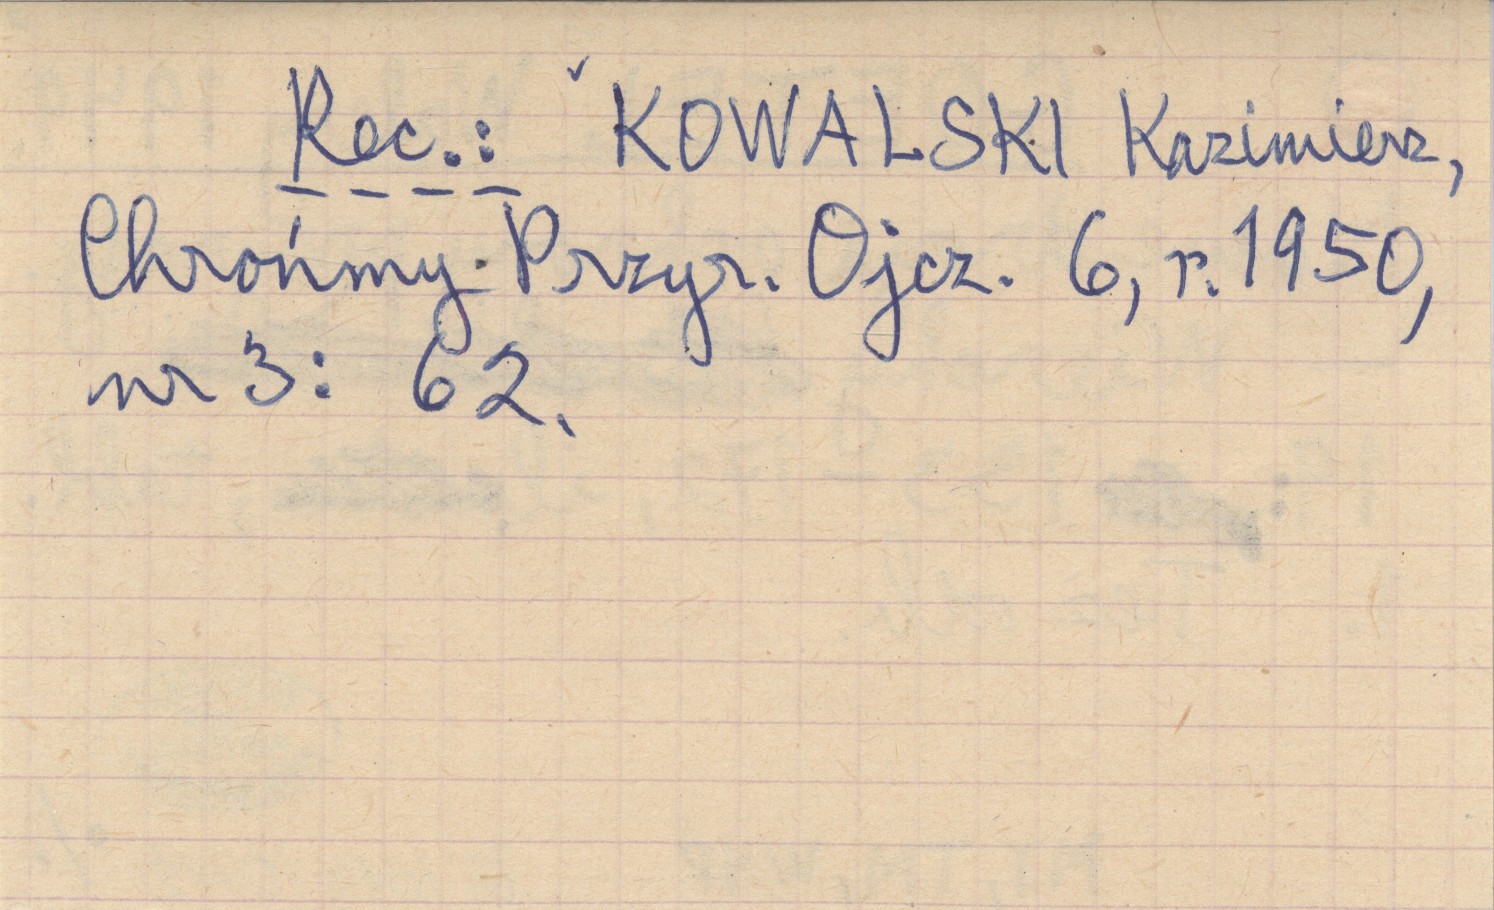 Rec.: KOWALSKI Kazimierz,
Chrońmy Przyr. Ojcz. 6, r. 1950,
nr 3: 62.